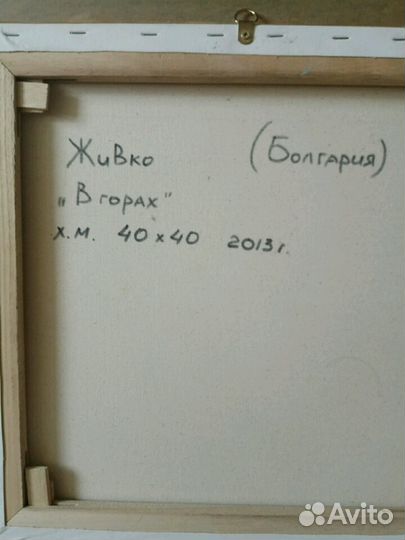 Живко (Болгария)
„В горах"
х.м. 40х40 2013г.
Avito